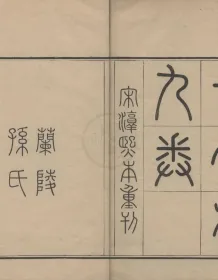 九卷
宋淳熙本重刊
蘭陵
孫氏